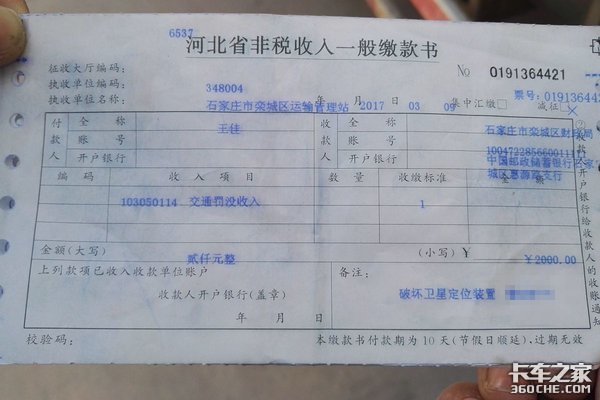 6537
河北省非税收入一般缴款书
征收大厅编码:
No 0191364421
执收单位编码: 348004
票号:0191364421
执收单位名称: 石家庄市栾城区运输管理站 2017年03月09日 集中汇缴□ 减征□
付款人 全称 王佳 收款人 全称 石家庄市栾城区财政局
账号 账号
开户银行 开户银行 中国邮政储蓄银行
城区惠源路支行
编码 收入项目 数量 收缴标准 金额
103050114 交通罚没收入 1
金额(大写) 贰仟元整 (小写)¥ ¥2000.00
上列款项已收入收款单位账户 备注:
收款人开户银行(盖章) 破坏卫星定位装置
年 月 日
校验码: 本缴款书付款期为10天(节假日顺延),过期无效
②收款人开户银行给收款人的收账通知
卡车之家
360che.com